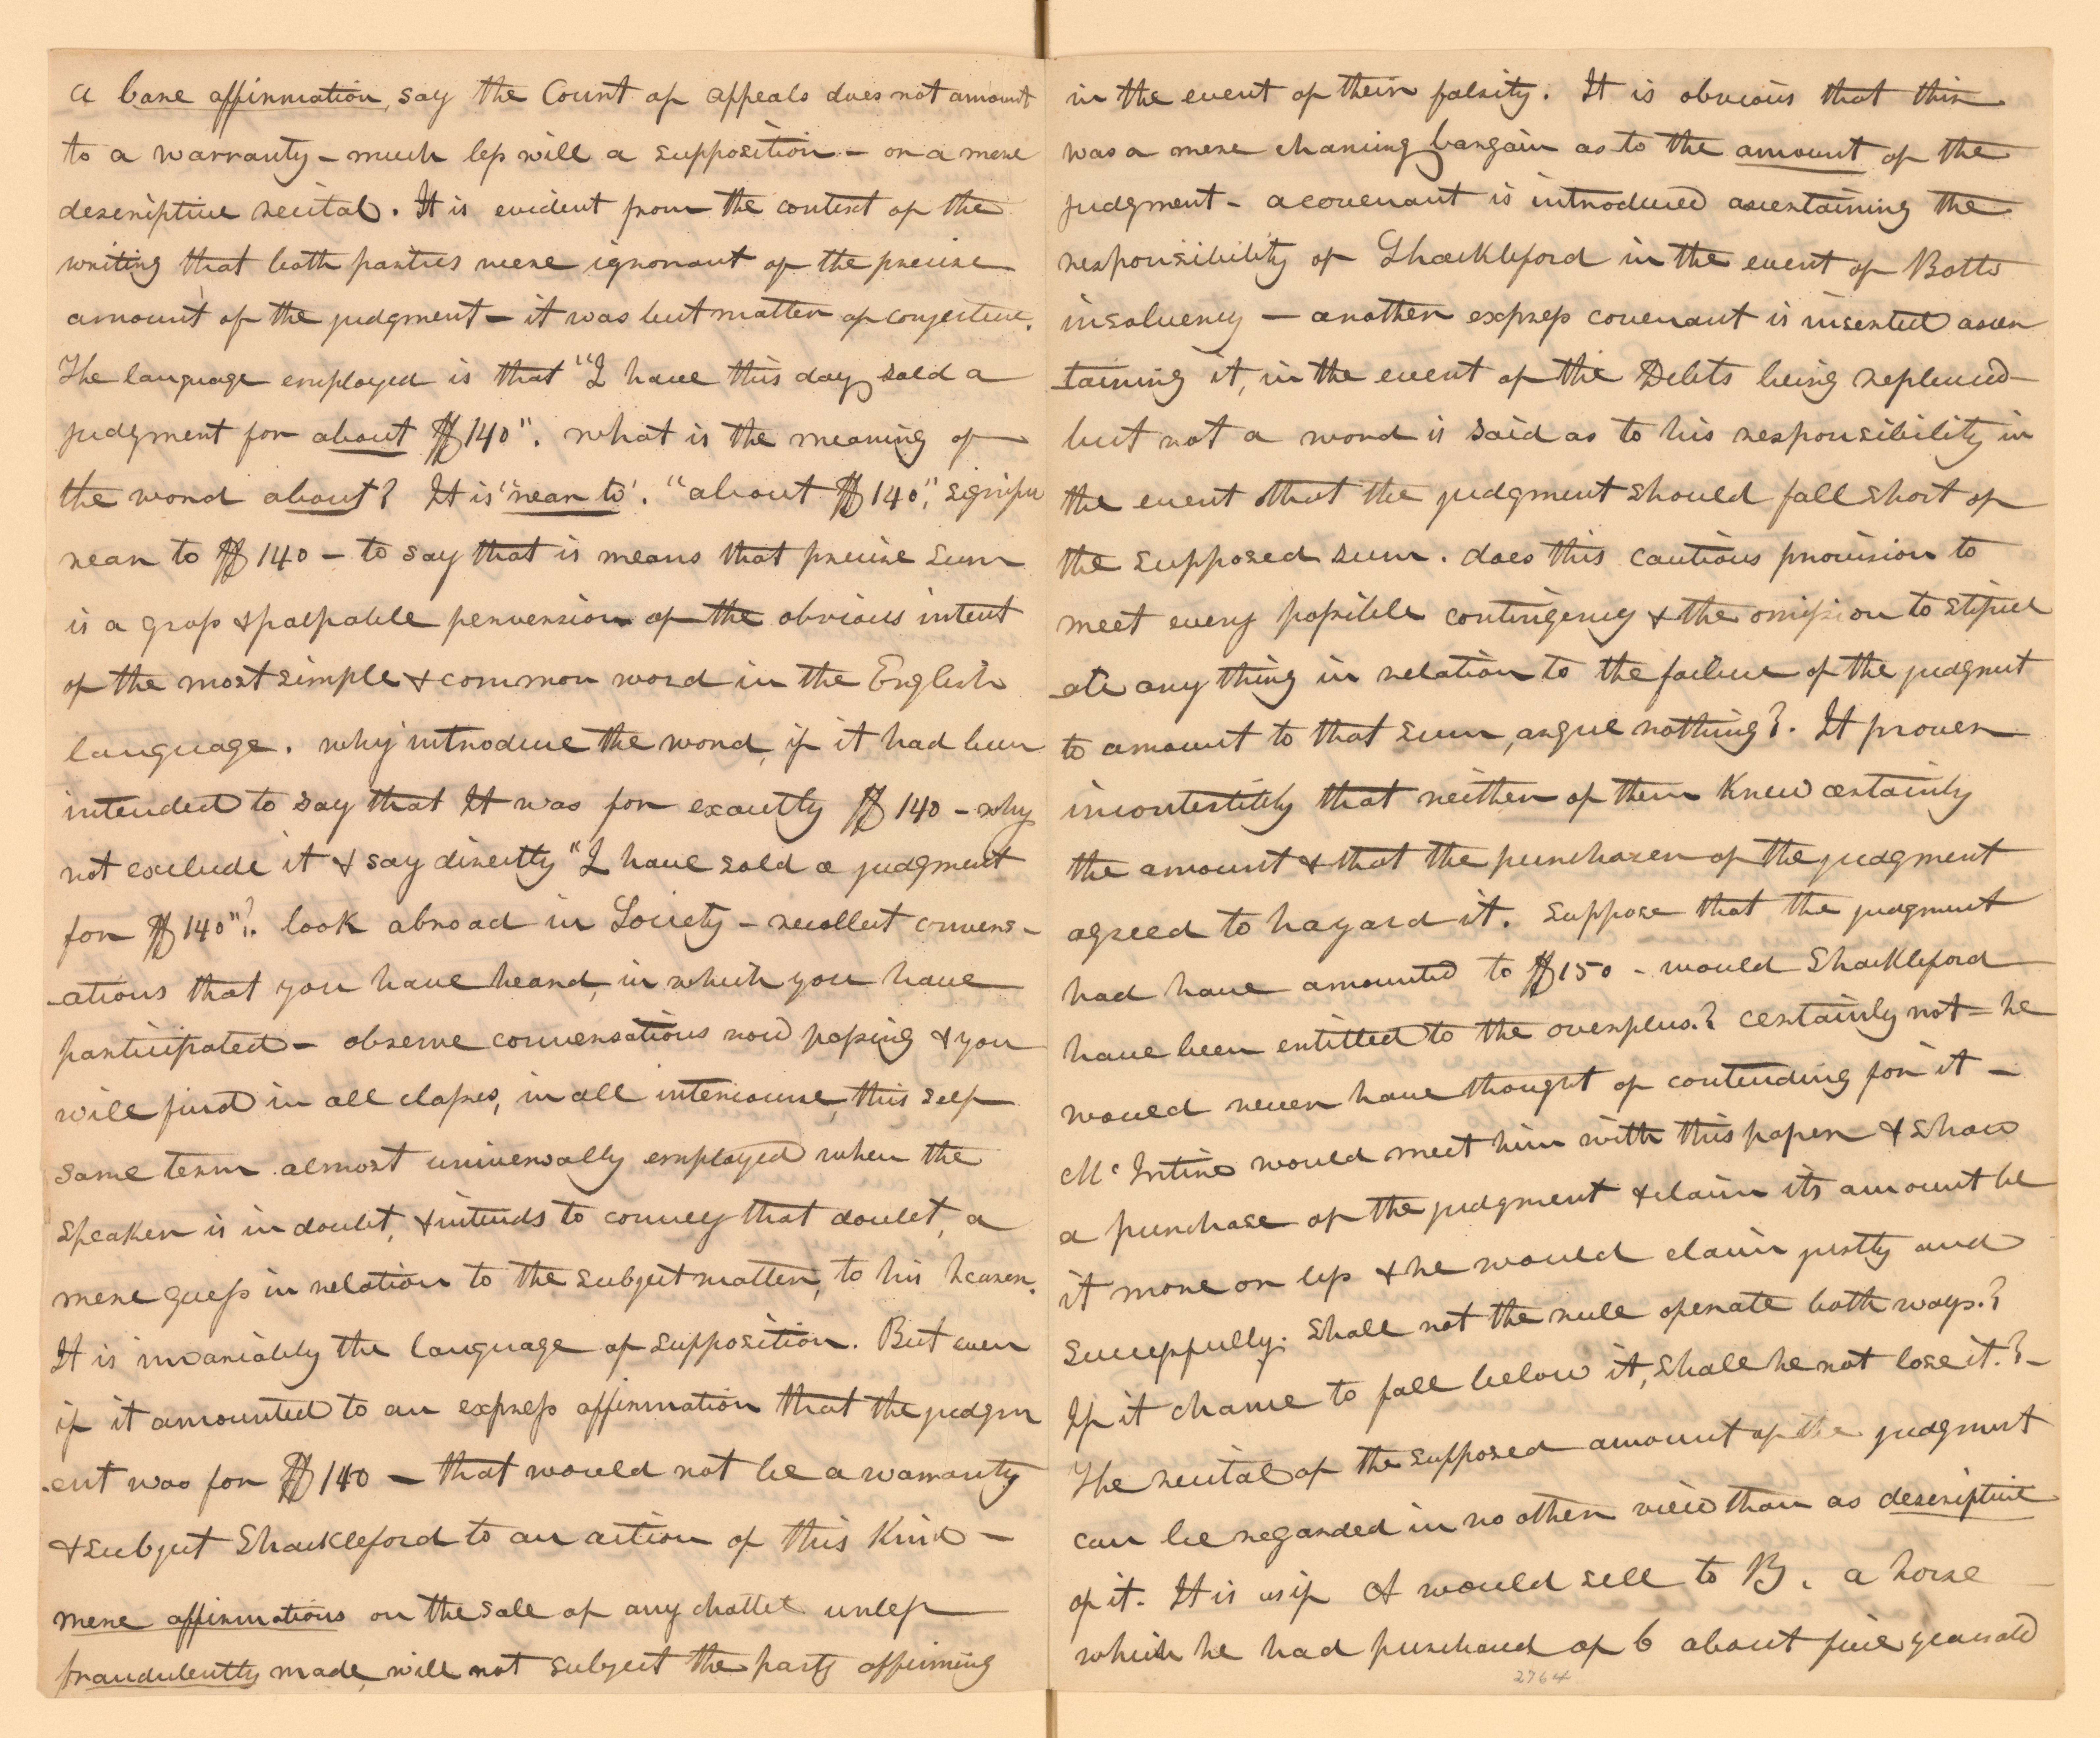 a bare affirmation, say the Court of appeals does not amount
to a warranty - much less will a supposition - or a mere
descriptive recital. It is evident from the context of the
writing that both parties were ignorant of the precise
amount of the judgment - it was but matter of conjecture.
The language employed is that "I have this day sold a
judgment for about $140". what is the meaning of
the word about? It is "near to". "about $140", signifies
near to $140 - to say that is means that precise sum
is a gross & palpable perversion of the obvious intent
of the most simple & common word in the English
language. why introduce the word, if it had been
intended to say that It was for exactly $140 - why
not exclude it & say directly "I have sold a judgment
for $140"? look abroad in Society - recollect convers-
-ations that you have heard, in which you have
participated - observe conversations now passing & you
will find in all classes, in all intercourse, this self
same term almost universally employed when the
speaker is in doubt, & intends to convey that doubt, a
mere guess in relation to the subject matter, to his hearer.
It is invariably the language of supposition. But even
if it amounted to an express affirmation that the judgm
-ent was for $140 - that would not be a warranty
& subject Shackleford to an action of this Kind -
mere affirmations on the sale of any chattel unless
fraudulently made, will not subject the party affirming
in the event of their falsity. It is obvious that this
was a mere chancing bargain as to the amount of the
judgment - a covenant is introduced ascertaining the
responsibility of Shackleford in the event of Botts
insolvency - another express covenant is inserted ascer
taining it, in the event of the Debts being replevied
but not a word is said as to his responsibility in
the event that the judgment should fall short of
the supposed sum. does this cautious provision to
meet every possible contingency & the omission to stipul
-ate any thing in relation to the failure of the judgment
to amount to that sum, argue nothing?. It proves
incontestibly that neither of them Knew certainly
the amount & that the purchaser of the judgment
agreed to hazard it. Suppose that the judgment
had have amounted to $150 - would Shackleford
have been entitled to the overplus.? certainly not = he
would never have thought of contending for it -
McIntire would meet him with this paper & show
a purchase of the judgment & claim its amount be
it more or less & he would claim justly and
Successfully. Shall not the rule operate both ways.?
If it chance to fall below it, shall he not lose it.? -
The recital of the supposed amount of the judgment
can be regarded in no other view than as descriptive
of it. It is as if A would sell to B. a horse
which he had purchased of 6 about five years old
2764